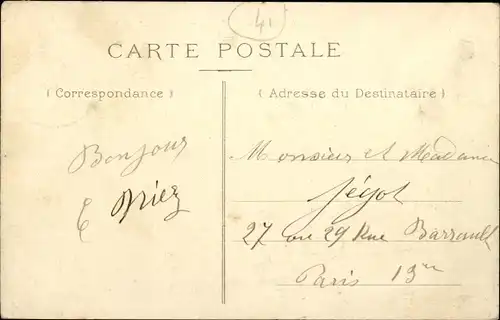 41
CARTE POSTALE
( Correspondance )
( Adresse du Destinataire )
Bonjour
Monsieur et Madame
Jégot
27 ou 29 Rue Barrault
Paris 13me